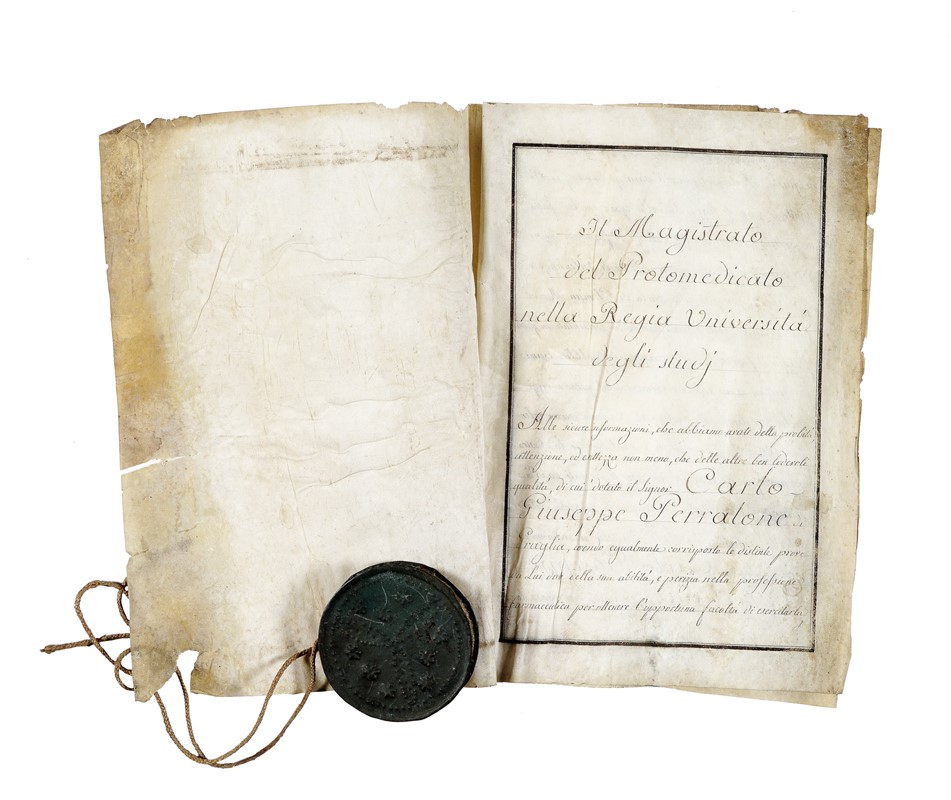 Il Magistrato
del Protomedicato
nella Regia Universitá
degli studj
Alle sicure informazioni, che abbiamo avute della probitá
attenzione, ed esattezza non meno, che delle altre ben lodevoli
qualitá, di cui dotato il Signor Carlo-
Giuseppe Perratone di
Graglia, avendo egualmente corrisposto le distinte prove
da Lui date della sua abilitá, e perizia nella professione
farmaceutica per ottenere l'opportuna facoltá di esercitarla,